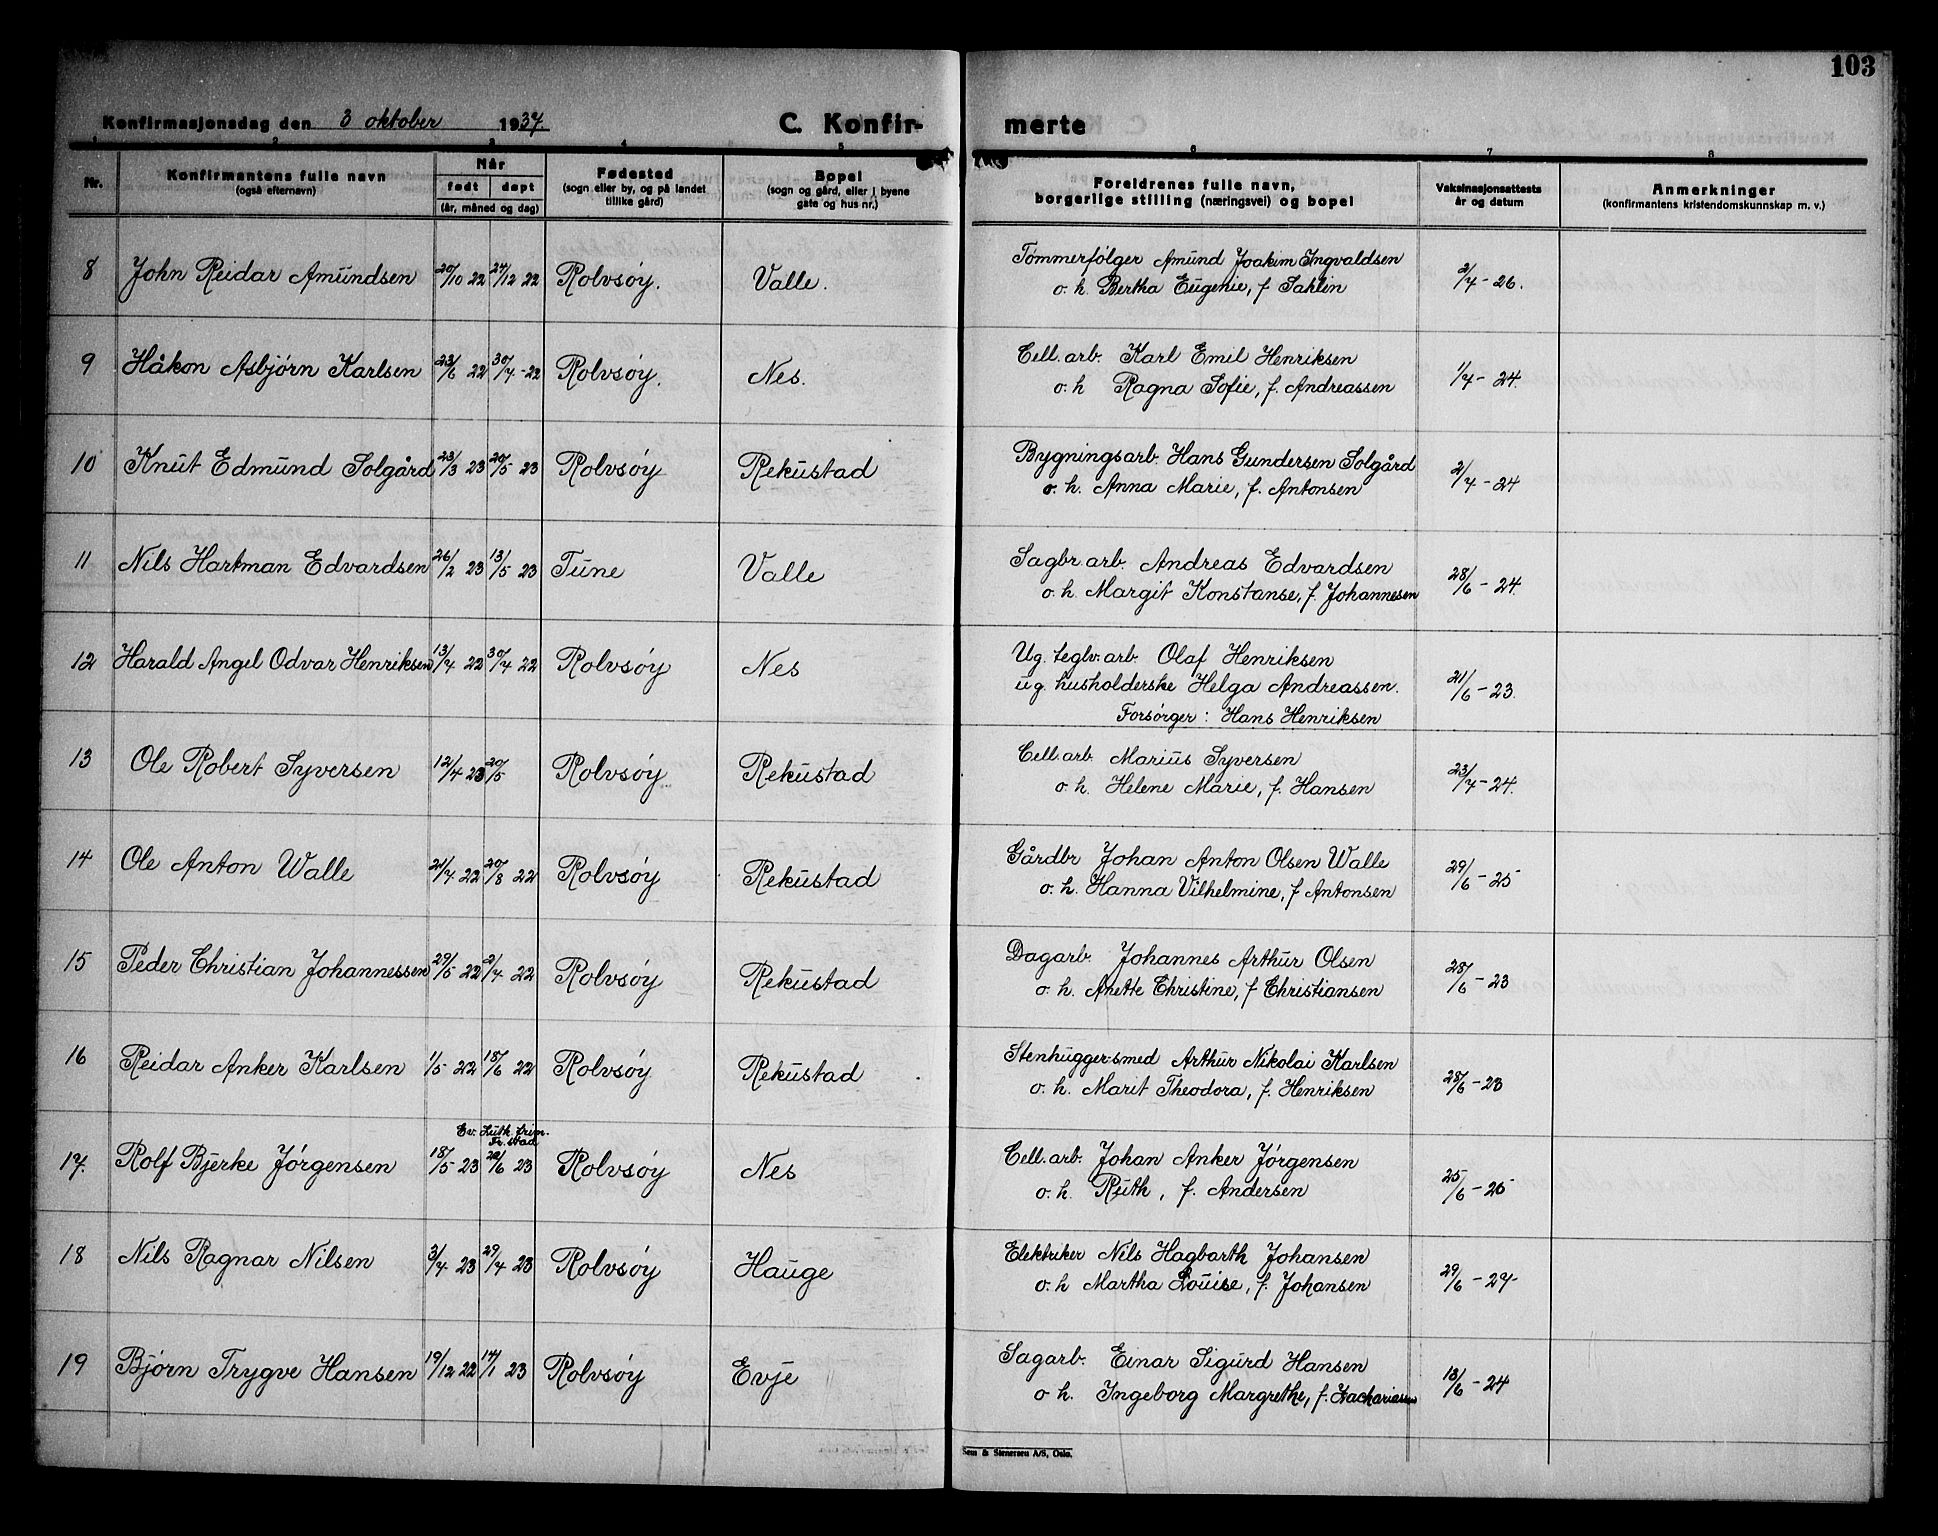 103
Konfirmasjonsdag den 3 oktober 1937.
C. Konfir- merte
1 2 3 4 5 6 7 8
Nr.
Konfirmantens fulle navn
(også efternavn)
Når
født døpt
(år, måned og dag)
Fødested
(sogn eller by, og på landet
tillike gård)
Bopel
(sogn og gård, eller i byene
gate og hus nr.)
Foreldrenes fulle navn,
borgerlige stilling (næringsvei) og bopel
Vaksinasjonsattests
år og datum
Anmerkninger
(konfirmantens kristendomskunnskap m. v.)
8 John Reidar Amundsen 20/10 22 24/12 22 Rolvsøy. Valle. Tømmerfølger Amund Joakim Ingvaldsen 2/7 - 26.
o. h. Bertha Eugenie, f. Sahlin
9 Håkon Asbjørn Karlsen 23/6 22 30/7 - 22 Rolvsøy. Nes. Cell. arb. Karl Emil Henriksen 1/7 - 24.
o. h Ragna Sofie, f. Andreassen
10 Knut Edmund Solgård 23/3 23 20/5 23 Rolvsøy Rekustad Bygningsarb. Hans Gundersen Solgård 2/7 - 24
o. h. Anna Marie, f. Antonsen
11 Nils Hartman Edvardsen 26/2 23 13/5 23 Tune Valle Sagbr. arb. Andreas Edvardsen 28/6 - 24.
o. h. Margit Konstanse, f. Johannesen
12 Harald Angel Odvar Henriksen 13/4 22 30/4 22 Rolvsøy Nes Ug. teglv. arb. Olaf Henriksen 21/6 - 23.
ug. husholderske Helga Andreassen.
Forsørger : Hans Henriksen
13 Ole Robert Syversen 12/4 23 20/5 Rolvsøy Rekustad Cell. arb. Marius Syversen 23/7 - 24.
o. h. Helene Marie, f. Hansen
14 Ole Anton Walle 21/7 22 20/8 22 Rolvsøy Rekustad Gårdbr Johan Anton Olsen Walle 29/6 - 25
o. h. Hanna Vilhelmine, f Antonsen
15 Peder Christian Johannessen 29/5 22 2/7 22 Rolvsøy Rekustad Dagarb. Johannes Arthur Olsen 28/6 - 23
o. h. Anette Christine, f Christiansen
16 Reidar Anker Karlsen 1/5 22 18/6 22 Rolvsøy Rekustad Stenhugger-smed Arthur Nikolai Karlsen 28/6 - 23
o. h. Marit Theodora, f. Henriksen
Ev. Luth. frim.
Fr. stad
17. Rolf Bjerke Jørgensen 18/5 23 22/6 23 Rolvsøy Nes Cell. arb. Johan Anker Jørgensen 25/6 - 25
o. h. Ruth, f. Andersen
18 Nils Ragnar Nilsen 3/4 23 29/4 23 Rolvsøy Hauge Elektriker Nils Hagbarth Johansen 29/6 - 27
o. h Martha Louise, f. Johansen
19 Bjørn Trygve Hansen 19/12 22 14/1 23 Rolvsøy Evje Sagarb. Einar Sigurd Hansen 13/6 - 24
o h. Ingeborg Margrethe, f. Zachariasen
Sem & Stenersen A/S, Oslo.